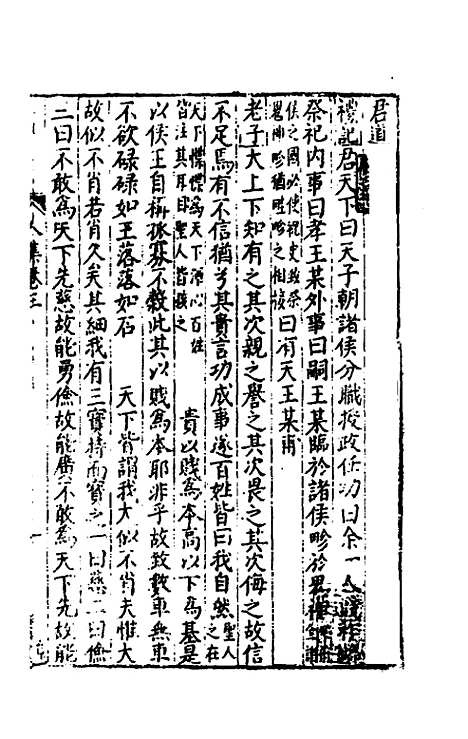 君道
禮記君天下曰天子朝諸侯分職授政任功曰余一人
祭祀内事曰孝王某外事曰嗣王某臨於諸侯畛於鬼神
曰有天王某甫
老子大上下知有之其次親之譽之其次畏之其次侮之故信
不足焉有不信猶兮其貴言功成事遂百姓皆曰我自然聖人之在
天下惵惵為天下渾心百姓皆注其耳目聖人皆孩之 貴以賤為本高以下為基是
以侯王自稱孤寡不穀此其以賤為本耶非乎故致數車無車
不欲碌碌如玉落落如石 天下皆謂我大似不肖夫惟大
故似不肖若肖久矣其細我有三寶持而寶之一曰慈二曰儉
三曰不敢為天下先慈故能勇儉故能廣不敢為天下先故能
人集卷三